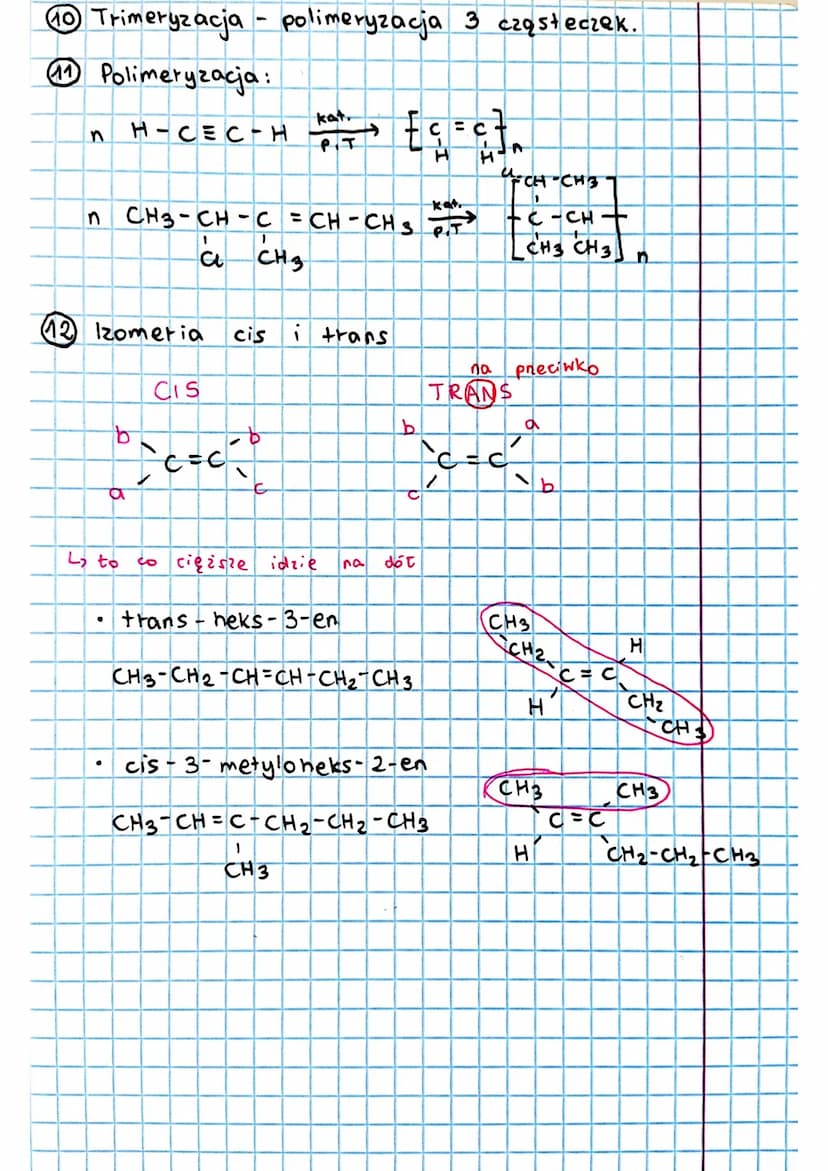 10 Trimeryzacja - polimeryzacja 3 cząsteczek.
11 Polimeryzacja:
n H-C≡C-H kat. p,T → [C=C]n
H H
n CH3-CH-C=CH-CH3 kat. p,T → [C-CH]n
Cl CH3
Cl-CH-CH3
CH3 CH3
12 Izomeria cis i trans
na przeciwko
CIS TRANS
b b b a
C=C C=C
a c c b
↳ to co cięższe idzie na dół
• trans-heks-3-en
CH3-CH2-CH=CH-CH2-CH3
CH3
CH2 H
C=C
H CH2
CH3
• cis-3-metyloheks-2-en
CH3-CH=C-CH2-CH2-CH3
CH3
CH3 CH3
C=C
H CH2-CH2-CH3